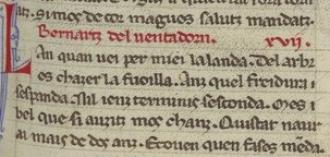 simos de cor magnos salutz mandatz.
Bernartz del uentadorn. xvii.
Lan quan uei per miei la landa. Del arbr
es chazer la fuoilla. Anz quel freidura i
sespanda. Nil iens terminis sesconda. Mes i
bel que si auzitz mos chanz. Quistat naur
ai mais de dos anz. Et couen quen fasos mēda.